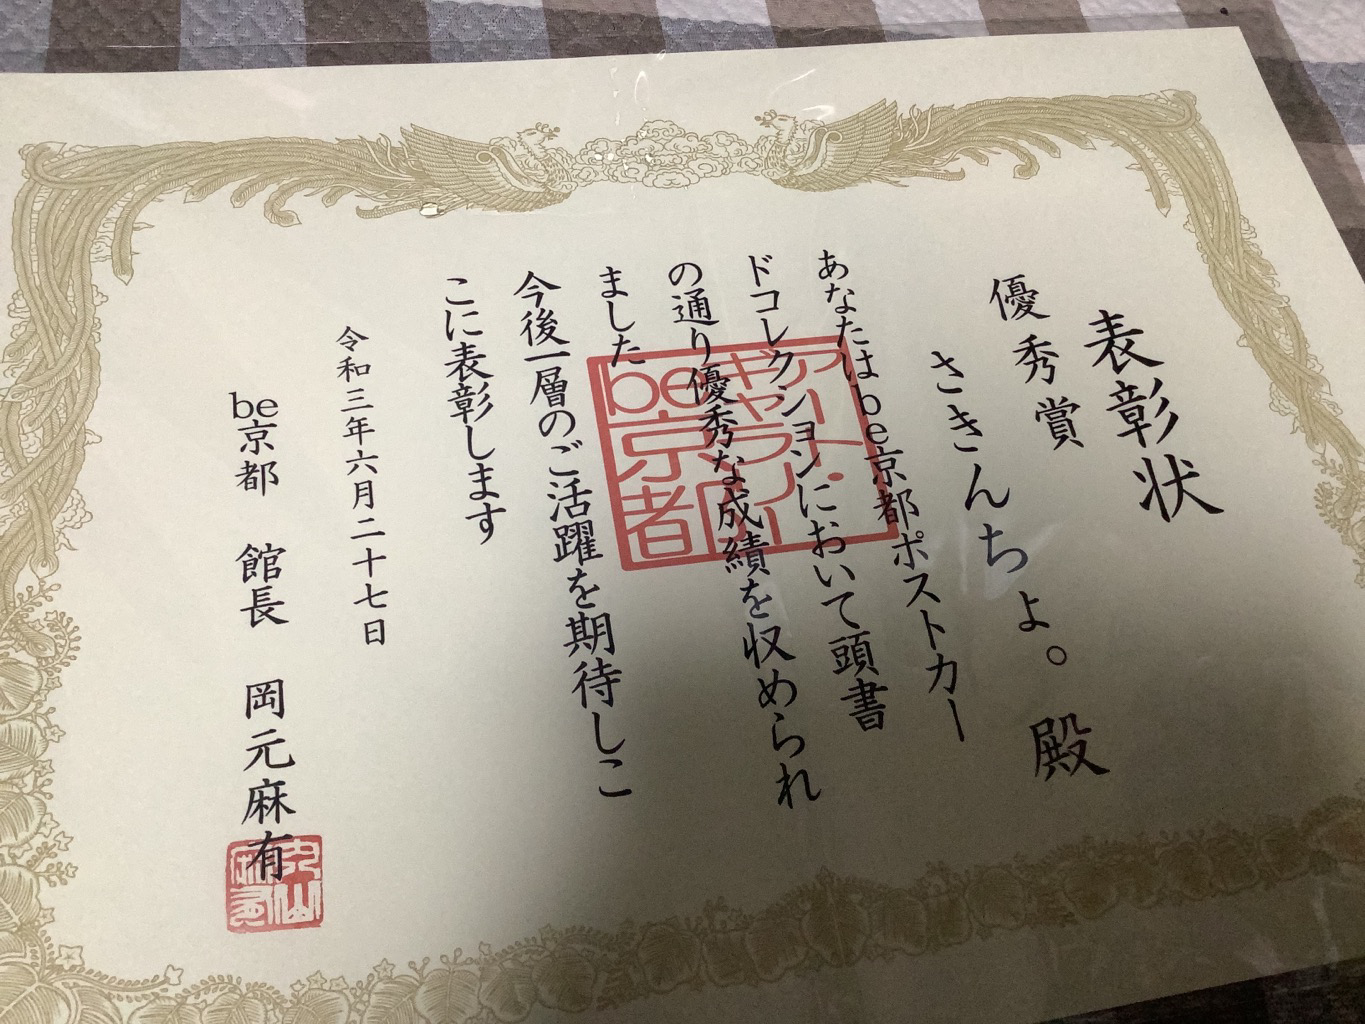 表彰状
優秀賞
さきんちょ。 殿
あなたはbe京都ポストカー
ドコレクションにおいて頭書
の通り優秀な成績を収められ
ました
今後一層のご活躍を期待しこ
こに表彰します
令和三年六月二十七日
be京都 館長 岡元麻有
アート・
ギャラリー
be京都